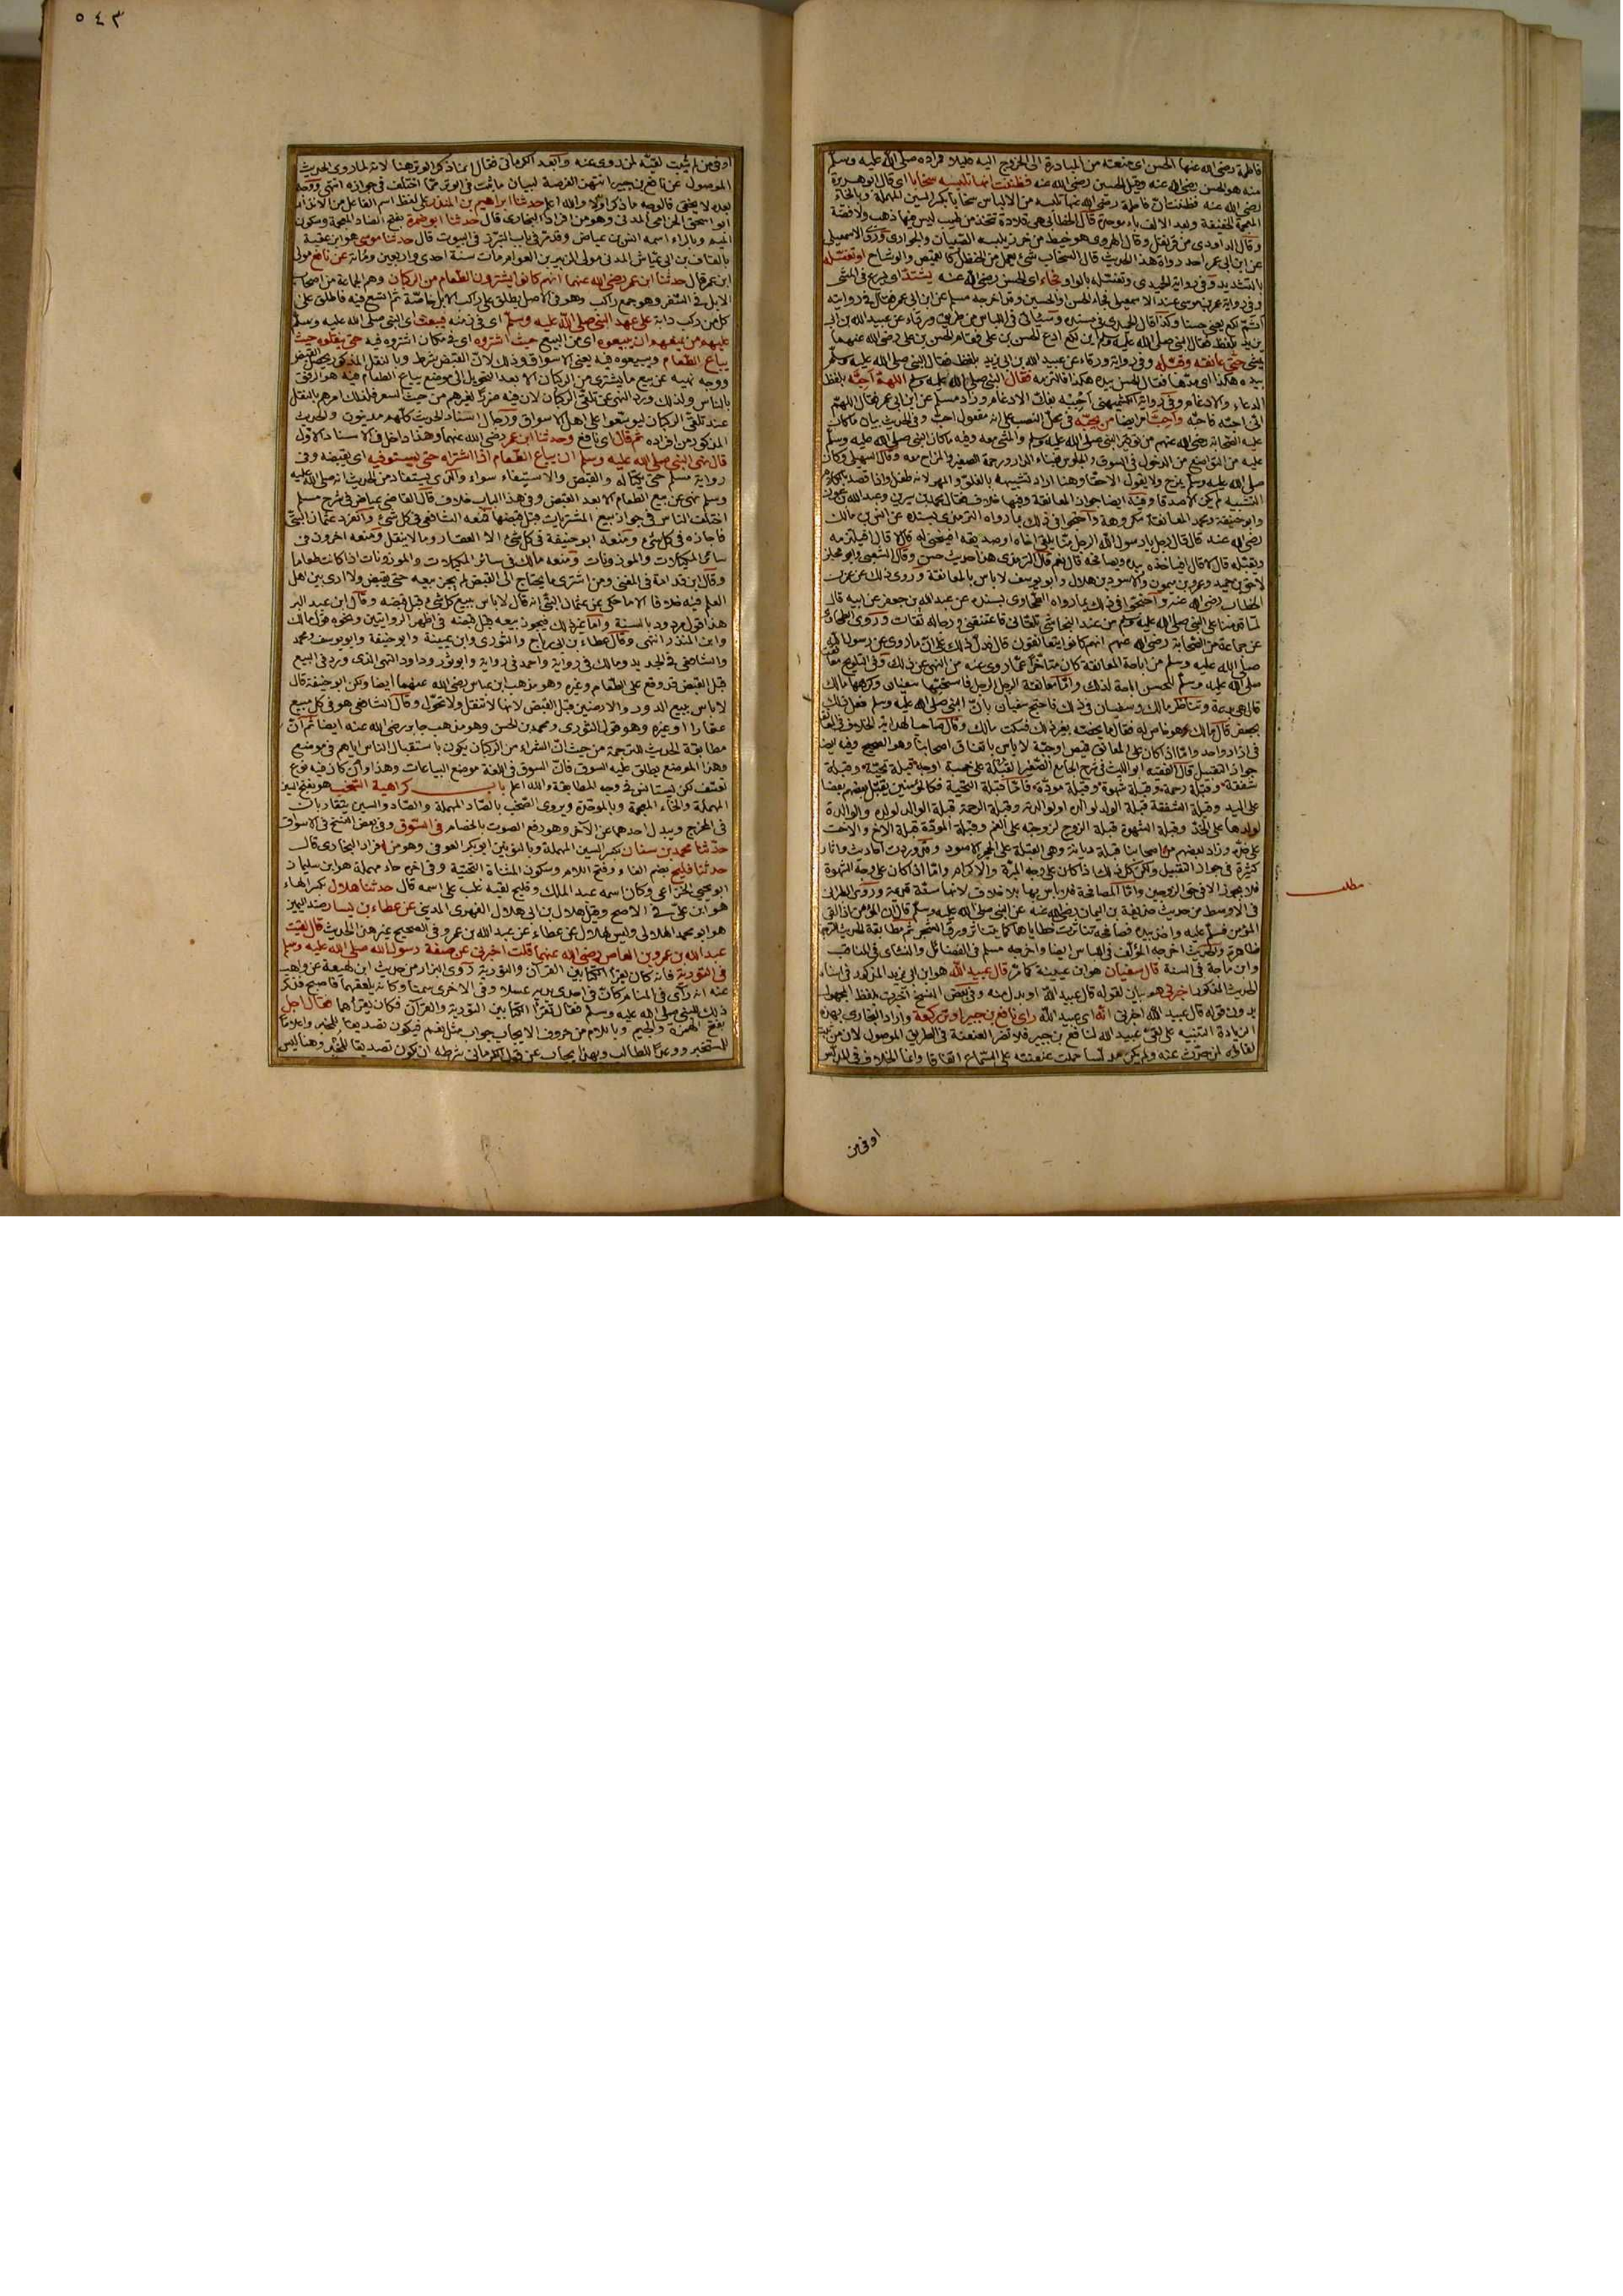 فاطمة رضي الله عنها الحسن اى منعته من المبادرة الى الخروج اليه قليلا صلى الله عليه وسلم
منه هو الحسن رضي الله عنه وقيل الحسين رضي الله عنه فظننت انها تلبسه سخابا اى قال ابو هريرة
رضي الله عنه فظننت ان فاطمة رضي الله عنها تلبسه من الالباس سخابا بكسر السين المهملة وبالخاء
المعجمة الخفيفة وبعد الالف باء موحدة قال الخطابي هي قلادة تتخذ من طيب ليس فيها ذهب ولا فضة
وقال الداودى من قرنفل وقال الهروى هو خيط من خرز يلبسه الصبيان والجوارى وروى الاسمعيلى
عن ابن ابى عمر احد رواة هذا الحديث قال السخاب شئ يعمل من الحنظل كالقميص والوشاح او تغسله
بالتشديد وفى رواية الحميدى وتغسله بالواو فجاء اى الحسن رضي الله عنه يشتد اى يسرع فى المشى
وفى رواية عمر بن موسى عند الاسمعيلى فجاء الحسن والحسين وقد اخرجه مسلم عن ابن ابى عمر فقال فى روايته
اثم لكع يعنى حسنا وكذا قال الحميدى فى مسنده وسيأتى فى اللباس من طريق ورقاء عن عبيد الله بن ابى
يزيد بلفظ فقال النبى صلى الله عليه وسلم اين لكع ادع الحسن بن على فقام الحسن بن على رضي الله عنهما
يمشى حتى عانقه وقبله وفى رواية ورقاء عن عبيد الله بن ابى يزيد بلفظ فقال النبى صلى الله عليه وسلم
بيده هكذا اى مدها فقال الحسن بيده هكذا فالتزمه فقال النبى صلى الله عليه وسلم اللهم احبه بلفظ
الدعاء والادغام وفى رواية الكشميهنى احببه بفك الادغام وزاد مسلم عن ابن ابى عمر فقال اللهم
انى احبه فاحبه واحب امر ايضا من يحبه فى محل النصب على انه مفعول احب وفى الحديث بيان ما كان
عليه الصحابة رضي الله عنهم من توقير النبى صلى الله عليه وسلم والمشى معه وفيه ما كان النبى صلى الله عليه وسلم
عليه من التواضع من الدخول فى السوق والجلوس بفناء الدار ورحمة الصغير والمزاح معه وقال السهيلى وكان
صلى الله عليه وسلم يمزح ولا يقول الا حقا وهنا اراد تشبيهه بالفلو والمهر لانه طفل واذا قصد بالكلام
التشبيه لم يكن الا صدقا وفيه ايضا جواز المعانقة وفيها خلاف فقال محمد بن سيرين وعبد الله بن عون
وابو حنيفة ومحمد المعانقة مكروهة واحتجوا فى ذلك بما رواه الترمذى بسنده عن انس بن مالك
رضي الله عنه قال قال رجل يا رسول الله الرجل منا يلقى اخاه او صديقه اينحنى له قال لا قال افيلتزمه
ويقبله قال لا قال افيأخذه بيده ويصافحه قال نعم قال الترمذى هذا حديث حسن وقال الشعبى وابو مجلز
لاحق بن حميد وعمرو بن ميمون والاسود بن هلال وابو يوسف لا باس بالمعانقة وروى ذلك عن عمر بن
الخطاب رضي الله عنه واحتجوا فى ذلك بما رواه الطحاوى بسنده عن عبد الله بن جعفر عن ابيه قال
لما قدمنا على النبى صلى الله عليه وسلم من عند النجاشى تلقانى فاعتنقنى ورجاله ثقات وروى الطحاوى
عن جماعة من الصحابة رضي الله عنهم انهم كانوا يتعانقون قال فدل ذلك على ان ما روى عن رسول الله
صلى الله عليه وسلم من اباحة المعانقة كان متأخرا عما روى عنه من النهى عن ذلك وفى التلويح معانقة
صلى الله عليه وسلم للحسن اباحة لذلك واما معانقة الرجل الرجل فاستحبها سفيان وكرهها مالك
قال هى بدعة وتناظر مالك وسفيان فى ذلك فاحتج سفيان بان النبى صلى الله عليه وسلم فعل ذلك
بجعفر قال مالك هو خاص له فقال ما يخصه بغير ذلك فسكت مالك وقال صاحب الهداية الخلاف فى المعانقة
فى ازار واحد واما اذا كان على المعانق قميص او جبة لا باس باتفاق اصحابنا وهو الصحيح وفيه ايضا
جواز التقبيل قال الفقيه ابو الليث فى شرح الجامع الصغير القبلة على خمسة اوجه قبلة تحية وقبلة
شفقة وقبلة رحمة وقبلة شهوة وقبلة مودة فاما قبلة التحية فكالمؤمنين يقبل بعضهم بعضا
على اليد وقبلة الشفقة قبلة الولد لوالده او لوالدته وقبلة الرحمة قبلة الوالد لولده والوالدة
لولدها على الخد وقبلة الشهوة قبلة الزوج لزوجته على الفم وقبلة المودة قبلة الاخ والاخت
على خد وزاد بعضهم من اصحابنا قبلة ديانة وهى القبلة على الحجر الاسود وقد وردت احاديث واثار
كثيرة فى جواز التقبيل ولكن كل ذلك اذا كان على وجه المبرة والاكرام واما اذا كان على وجه الشهوة
فلا يجوز الا فى حق الزوجين واما المصافحة فلا باس بها بلا خلاف لانها سنة قديمة وروى الطبرانى
فى الاوسط من حديث حذيفة بن اليمان رضي الله عنه عن النبى صلى الله عليه وسلم قال ان المؤمن اذا لقى
المؤمن فسلم عليه واخذ بيده فصافحه تناثرت خطاياهما كما يتناثر ورق الشجر ثم مطابقة الحديث للترجمة
ظاهرة والحديث اخرجه المؤلف فى اللباس ايضا واخرجه مسلم فى الفضائل والنسائى فى المناقب
وابن ماجة فى السنة قال سفيان هو ابن عيينة كما مر قال عبيد الله هو ابن ابى يزيد المذكور فى اسناد
الحديث المذكور اخبرنى هو بيان لقوله قال عبيد الله او بدل منه وفى بعض النسخ اخبرت بلفظ المجهول
بدون قوله قال عبيد الله اخبرنى انه اى عبيد الله راى نافع بن جبير اوتر بركعة واراد البخارى بهذه
الزيادة التنبيه على لقى عبيد الله لنافع بن جبير فلا تضر العنعنة فى الطريق الموصول لان من
لقاؤه لمن حدث عنه ولم يكن مدلسا حملت عنعنته على السماع اتفاقا وانما الخلاف فى المدلس
مطلب
او فمن
٥٤٣
او فمن لم يثبت لقيه لمن روى عنه وابعد الكرمانى فقال انما ذكر الوتر هنا لانه لما روى الحديث
الموصول عن نافع بن جبير انتهز الفرصة لبيان ما ثبت فى الوتر مما اختلف فى جوازه انتهى ووجه
بعده لا يخفى فالوجه ما ذكر اولا والله اعلم حدثنا ابراهيم بن المنذر على لفظ اسم الفاعل من الانذار
ابو اسحق الحزامى المدنى وهو من افراد البخارى قال حدثنا ابو ضمرة بفتح الضاد المعجمة وسكون
الميم وبالراء اسمه انس بن عياض وقد مر فى باب التبرز فى البيوت قال حدثنا موسى هو ابن عقبة
بالقاف بن ابى عياش المدنى مولى الزبير بن العوام مات سنة احدى واربعين ومائة عن نافع مولى
ابن عمر قال حدثنا ابن عمر رضي الله عنهما انهم كانوا يشترون الطعام من الركبان وهم الجماعة من اصحاب
الابل فى السفر وهو جمع راكب وهو فى الاصل يطلق على راكب الابل خاصة ثم اتسع فيه فاطلق على
كل من ركب دابة على عهد النبى صلى الله عليه وسلم اى فى زمنه فيبعث اى النبى صلى الله عليه وسلم
عليهم من يمنعهم ان يبيعوه اى من البيع حيث اشتروه اى فى مكان اشتروه فيه حتى ينقلوه حيث
يباع الطعام ويبيعوه فيه يعنى الاسواق وذلك لان القبض شرط وبالنقل المذكور يحصل القبض
ووجه نهيه عن بيع ما يشترى من الركبان الا بعد التحويل الى موضع يباع الطعام فيه هو الرفق
بالناس ولذلك ورد النهى عن تلقى الركبان لان فيه ضررا لغيرهم من حيث السعر فلذلك امرهم بالنقل
عند تلقى الركبان ليوسعوا على اهل الاسواق ورجال اسناد الحديث كلهم مدنيون والحديث
المذكور من افراده ثم قال اى نافع وحدثنا ابن عمر رضي الله عنهما وهذا داخل فى الاسناد الاول
قال نهى النبى صلى الله عليه وسلم ان يباع الطعام اذا اشتراه حتى يستوفيه اى يقبضه وفى
رواية مسلم حتى يكتاله والقبض والاستيفاء سواء والذى يستفاد من الحديث انه صلى الله عليه
وسلم نهى عن بيع الطعام الا بعد القبض وفى هذا الباب خلاف قال القاضى عياض فى شرح مسلم
اختلف الناس فى جواز بيع المشتريات قبل قبضها فمنعه الشافعى فى كل شئ وانفرد عثمان البتى
فاجازه فى كل شئ ومنعه ابو حنيفة فى كل شئ الا العقار وما لا ينقل ومنعه اخرون فى
سائر المكيلات والموزونات ومنعه مالك فى سائر المكيلات والموزونات اذا كانت طعاما
وقال ابن قدامة فى المغنى ومن اشترى ما يحتاج الى القبض لم يجز بيعه حتى يقبض ولا ارى بين اهل
العلم فيه خلافا الا ما حكى عن عثمان البتى انه قال لا باس ببيع كل شئ قبل قبضه وقال ابن عبد البر
هذا قول مردود بالسنة واما غير ذلك فيجوز بيعه قبل قبضه فى اظهر الروايتين ونحوه قول مالك
وابن المنذر انتهى وقال عطاء بن ابى رباح والثورى وابن عيينة وابو حنيفة وابو يوسف ومحمد
والشافعى فى الجديد ومالك فى رواية واحمد فى رواية وابو ثور وداود النهى الذى ورد فى البيع
قبل القبض قد وقع على الطعام وغيره وهو مذهب ابن عباس رضي الله عنهما ايضا ولكن ابو حنيفة قال
لا باس ببيع الدور والارضين قبل القبض لانها لا تنقل ولا تحول وقال الشافعى هو فى كل مبيع
عقارا او غيره وهو قول الثورى ومحمد بن الحسن وهو مذهب جابر رضي الله عنه ايضا ثم ان
مطابقة الحديث للترجمة من حيث ان الشراء من الركبان يكون باستقبال الناس اياهم فى موضع
وهذا الموضع يطلق عليه السوق فان السوق فى اللغة موضع البياعات وهذا وان كان فيه نوع
تعسف لكن يستأنس فى وجه المطابقة والله اعلم باب كراهية السخب هو بفتح السين
المهملة والخاء المعجمة وبالموحدة ويروى الصخب بالصاد المهملة والصاد والسين يتقاربان
فى المخرج ويبدل احدهما عن الآخر وهو رفع الصوت بالخصام فى السوق وفى بعض النسخ فى الاسواق
حدثنا محمد بن سنان بكسر السين المهملة وبالنونين ابو بكر العوفى وهو من افراد البخارى قال
حدثنا فليح بضم الفاء وفتح اللام وسكون المثناة التحتية وفى اخره حاء مهملة هو ابن سليمان
ابو يحيى الخزاعى وكان اسمه عبد الملك وفليح لقبه غلب على اسمه قال حدثنا هلال بكسر الهاء
هو ابن على فى الاصح وقيل هلال بن ابى هلال الفهرى المدينى عن عطاء بن يسار ضد اليمين
هو ابو محمد الهلالى وليس لهلال عن عطاء عن عبد الله بن عمرو فى الصحيح غير هذا الحديث قال لقيت
عبد الله بن عمرو بن العاص رضي الله عنهما قلت اخبرنى عن صفة رسول الله صلى الله عليه وسلم
فى التورية فانه كان يقرأ الكتابين القرآن والتورية روى البزار من حديث ابن لهيعة عن واهب
عنه انه رآى فى المنام كان فى احدى يديه عسلا وفى الاخرى سمنا وكانه يلعقهما فاصبح فذكر
ذلك للنبى صلى الله عليه وسلم فقال تقرأ الكتابين التورية والقرآن فكان يقرأهما فقال اجل
بفتح الهمزة والجيم وباللام من حروف الايجاب جواب مثل نعم فيكون تصديقا للمخبر واعلاما
للمستخبر ووعدا للطالب وبهذا يجاب عن قول الكرمانى شرطه ان يكون تصديقا للمخبر وهنا ليس